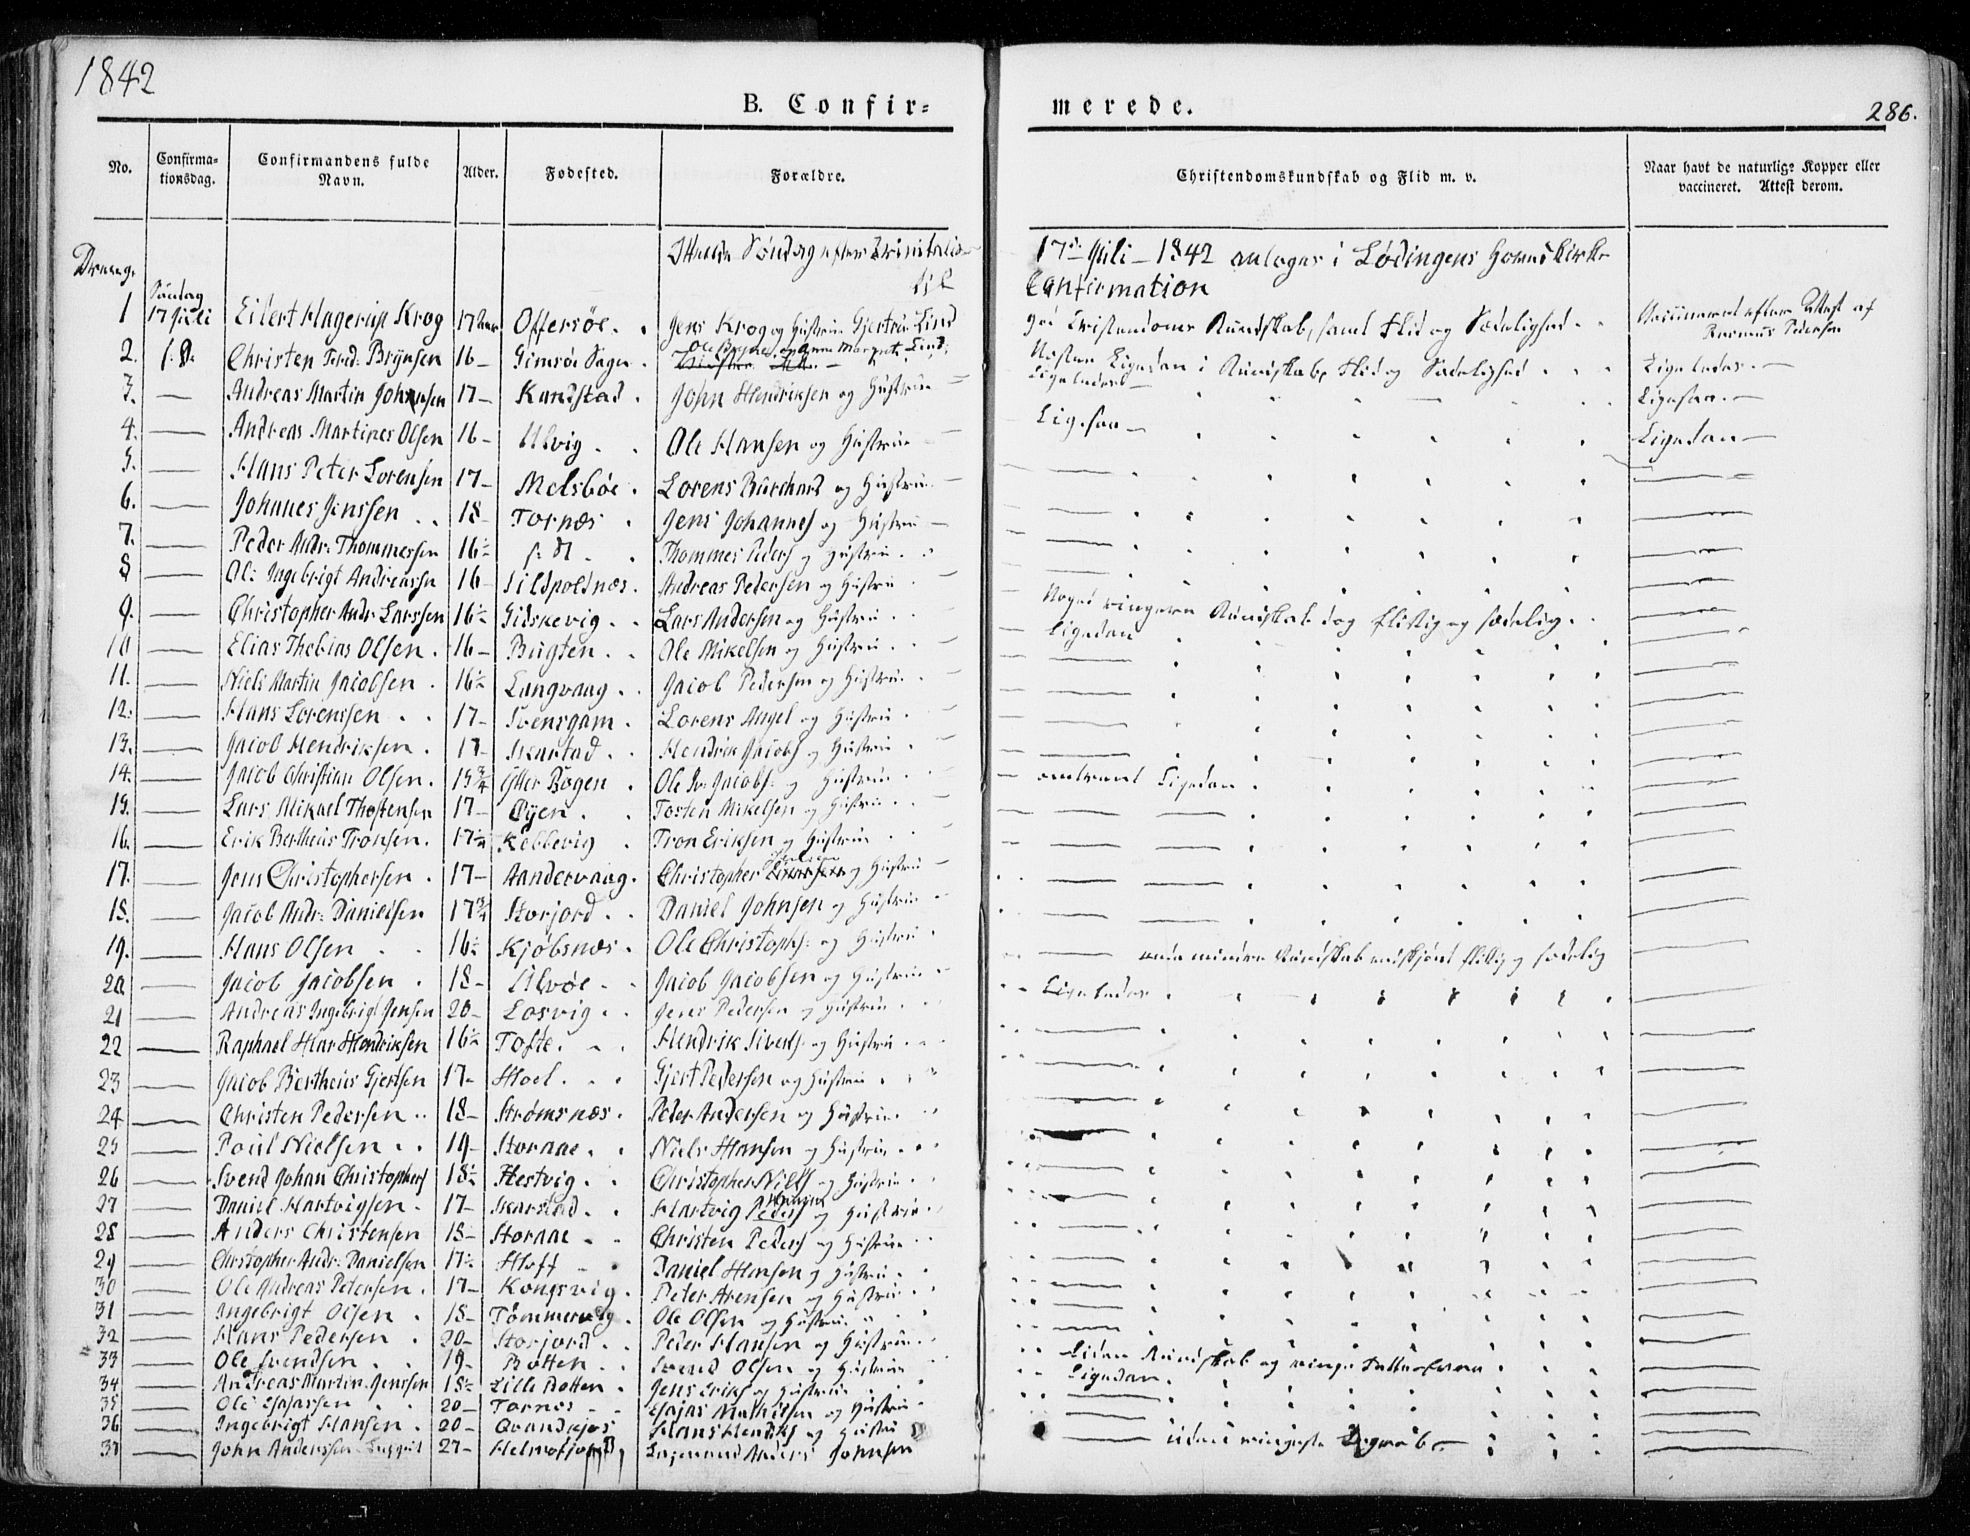 1842
B. Confir=
merede.
286.
No. Confirma-tionsdag. Confirmandens fulde Navn. Alder. Fødested. Forældre. Christendomskundskab og Flid m. v. Naar havt de naturlige Kopper eller vaccineret. Attest derom.
Søndag efter Trinitatis
17de Juli 1842 antoges i Lødingens Hovedkirke
til Confirmation
Drenge.
1 Søndag 17 Juli Eilert Hagerup Krog 17 Offersøe. Jens Krog og Hustrue Gjertrue Lind god Christendoms Kundskab, samt Flid og Sædelighed Vaccineret efter Attest af Rasmus Pedersen
2. Christen Ferd: Brynsen 16 Gimsøe Sogn Ole Anne Margrete Lind. Næsten Ligedan i Kundskab, Flid og Sædelighed Ligeledes.
3. Andreas Martin Johnsen 17 Kandstad. John Hendriksen og Hustrue Ligeledes Ligesaa.
4. Andreas Martines Olsen 16 Ulvig. Ole Hansen og Hustrue Ligesaa Ligedan
5. Hans Peter Lorensen 17 Melsbøe. Lorens Burchard og Hustrue
6. Johannes Jenssen 18 Tornæs Jens Johannes og Hustrue
7. Peder Andr: Thommessen 16 Thommes Peders og Hustrue
8 Ole Ingebrigt Andreassen 16 Sildpoldnæs. Andreas Pedersen og Hustrue
9. Christopher Andr: Larssen 16 Gidskevig. Lars Andersen og Hustrue Noget ringere Kundskab dog flittig og sædelig.
10 Elias Thobias Olsen. 16 Bugten. Ole Mikelsen og Hustrue Ligedan
11. Niels Martin Jacobsen 16 Langvaag. Jacob Pedersen og Hustrue
12. Hans Lorenssen 17 Svensgam. Lorens Angel og Hustrue
13. Jacob Hendriksen. 17 Skarstad. Hendrik Jacobs og Hustrue
14. Jacob Christian Olsen. 15 3/4 Ytter Bogen Ole Jacobs: og Hustrue omtrent Ligedan
15. Lars Mikael Thostensen 17 Øyen. Tosten Mikelsen og Hustrue
16. Erik Bertheus Tronsen. 17 Kobbevig Tron Eriksen og Hustrue
17. Jens Christophersen. 17 Aandervaag. Christopher og Hustrue
18. Jacob Andr: Danielsen 17 3/4 Storjord. Daniel Johnsen og Hustrue
19. Hans Olsen 16 Kjøbsnæs. Ole Christophs: og Hustrue mindre Kundskab endskjønt flittig og sædelig
20. Jacob Jacobsen 18 Ulvøe. Jacob Jacobsen og Hustrue Ligeledes
21 Andreas Ingebrigt Jensen 20 Losvig. Jens Pedersen og Hustrue
22 Raphael Hendriksen 16 Tofte. Hendrik Siverts og Hustrue
23 Jacob Bertheus Gjertsen 17 Hoel. Gjert Pedersen og Hustrue
24 Christen Pedersen 18 Strømsnæs. Peder Andersen og Hustrue
25 Poul Nielsen 19 Stornæs. Niels Hansen og Hustrue
26 Svend Johan Christophers 18 Hestvig. Christopher Niels og Hustrue
27 Daniel Hartvigsen. 17 Skarstad. Hartvig Peders Hansen og Hustrue
28 Anders Christensen 18 Stornæs Christen Peders og Hustrue
29 Christopher Andr: Danielsen 17 Hoff Daniel Hansen og Hustrue
30 Ole Andreas Petersen. 17 Kongsvig. Peter Arensen og Hustrue
31 Ingebrigt Olsen 18 Tømmervig. Ole Olsen og Hustrue
32 Hans Pedersen 20 Storjord. Peder Hansen og Hustrue
33 Ole Svendsen 19 Botten Svend Olsen og Hustrue Liden Kundskab og ringe Fatteevne
34 Andreas Martin Jenssen 18 Lille Botten. Jens Eriks og Hustrue Ligedan.
35 Ole Esajassen 20 Tornes Esajas Mathisen og Hustrue
36 Ingebrigt Hansen. 20 Qvandkjos Hans Hendriks og Hustrue
37 John Anderssen 27 Anders Johnsen